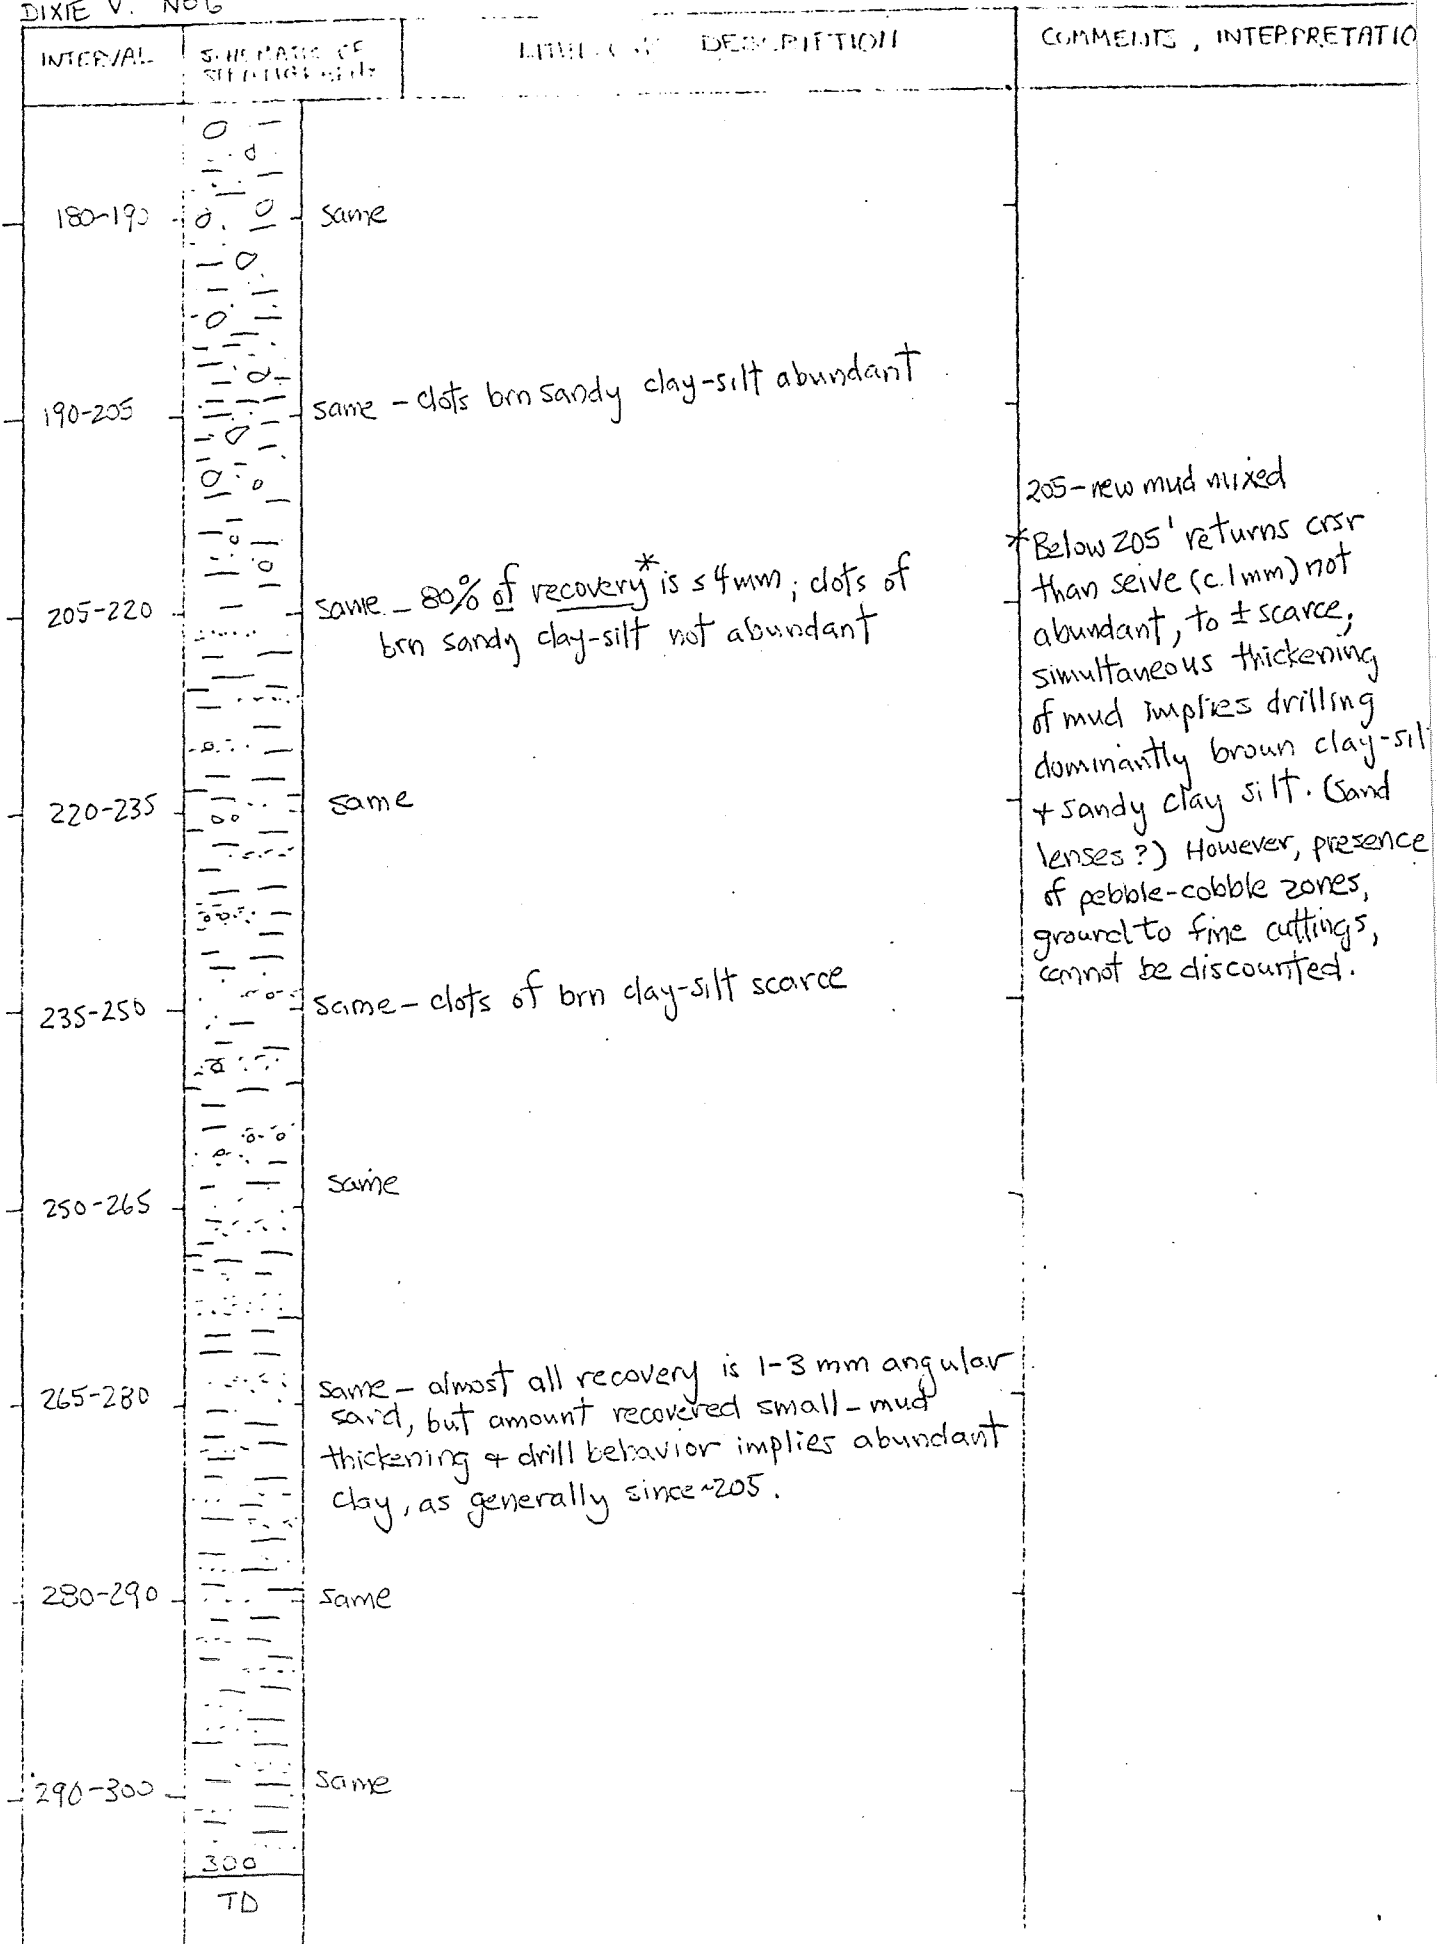 DIXIE V. NO6
INTERVAL
SCHEMATIC OF
DESCRIPTION
COMMENTS, INTERPRETATIO
180-190
same
190-205
same - clots brn sandy clay-silt abundant
205-220
same - 80% of recovery* is ≤4mm; clots of
brn sandy clay-silt not abundant
205-new mud mixed
*Below 205' returns crsr
than seive (c.1mm) not
abundant, to ± scarce;
simultaneous thickening
of mud implies drilling
dominantly broun clay-sil
+ sandy clay silt. (Sand
lenses?) However, presence
of pebble-cobble zones,
ground to fine cuttings,
cannot be discounted.
220-235
same
235-250
same - clots of brn clay-silt scarce
250-265
same
265-280
same - almost all recovery is 1-3 mm angular
sand, but amount recovered small - mud
thickening + drill behavior implies abundant
clay, as generally since ~205.
280-290
same
290-300
same
300
TD